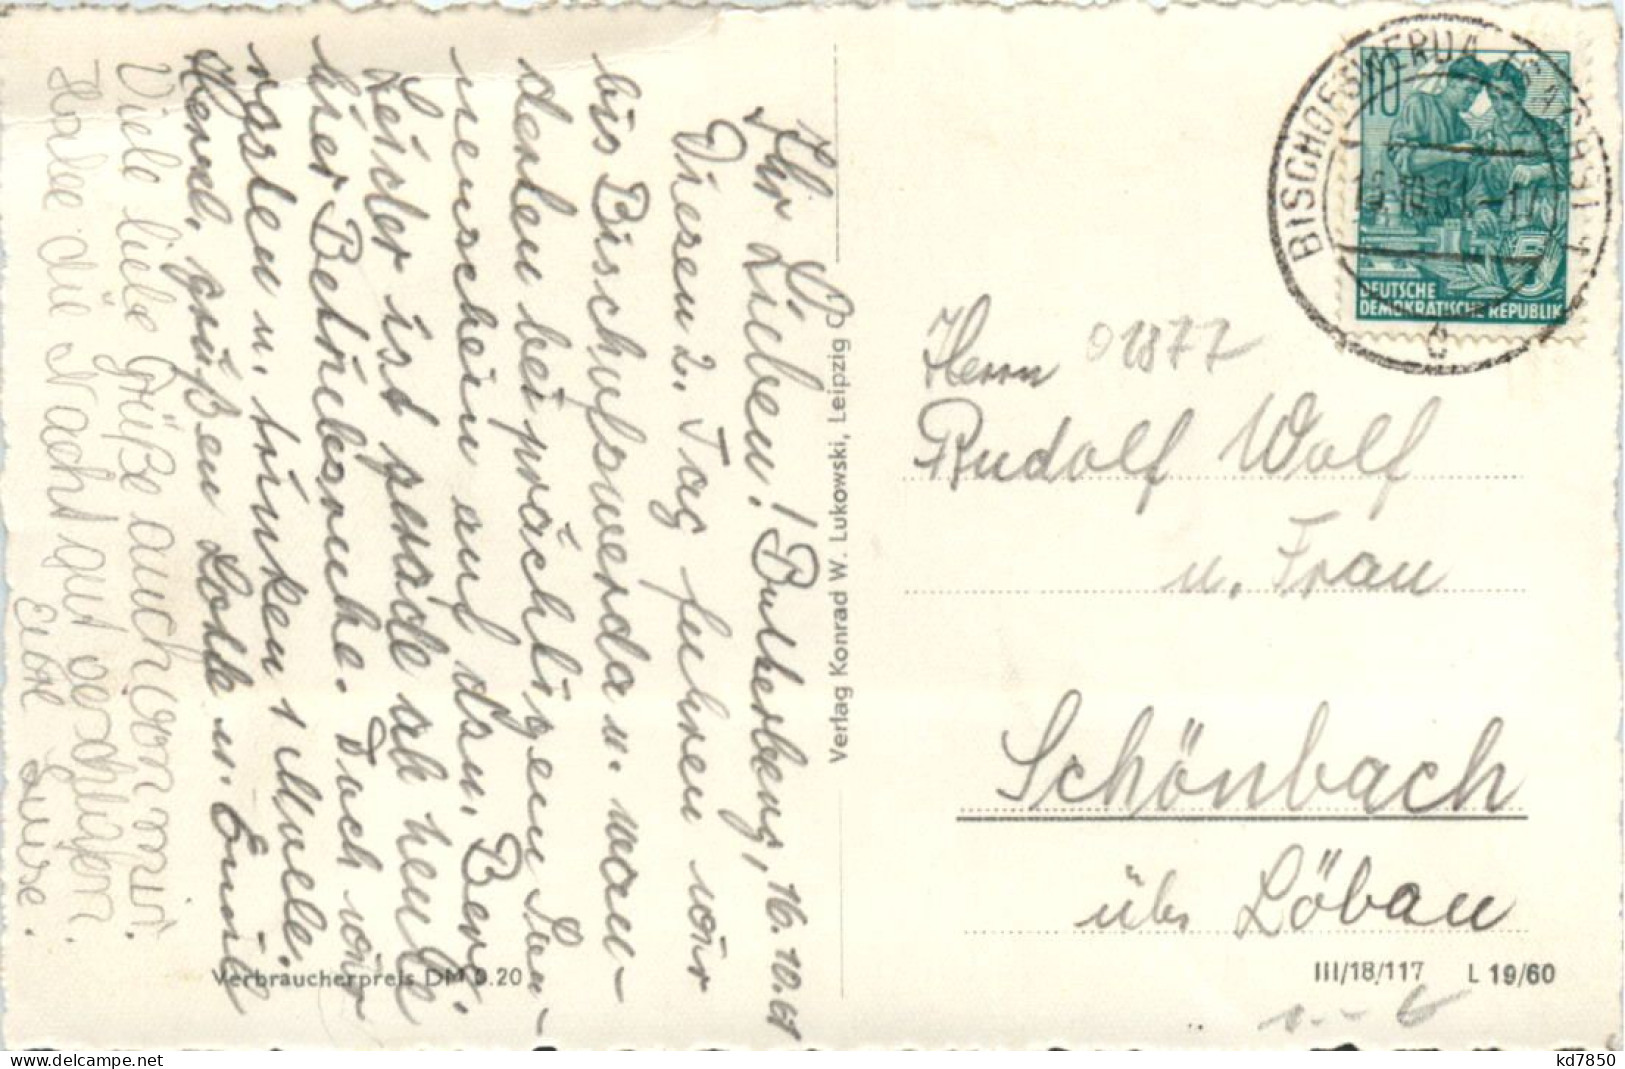 Ihr Lieben! Butterberg, 16.10.61
Diesen 2. Tag fuhren wir
bis Bischofswerda u. wan-
derten bei prächtigem Son-
nenschein auf dsn. Berg.
Leider ist gerade ab heute
hier Betriebsruhe. Doch wir
rasten u. trinken 1 Mulle.
Herzl. grüßen Lotte u. Emil
Viele liebe Grüße auch von mir.
Habe die Nacht gut
Eure
Verlag Konrad W. Lukowski, Leipzig O
Verbraucherpreis DM 0.20
BISCHOFSWERDA
10
16.10.61-17
5
DEUTSCHE
DEMOKRATISCHE REPUBLIK
b
Herrn 01877
Rudolf Wolf
u. Frau
Schönbach
über Löbau
III/18/117 L 19/60
kd7850
www.delcampe.net